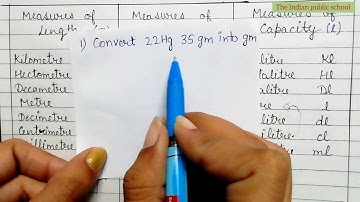 The Indian public school
Measures of Measures of Measures of
Length Capacity (l)
1) Convert 22Hg 35 gm into gm
Kilometre litre Kl
Hectometre litre Hl
Decametre litre Dl
Metre litre
Decimetre litre dl
Centimetre litre cl
Millimetre litre ml